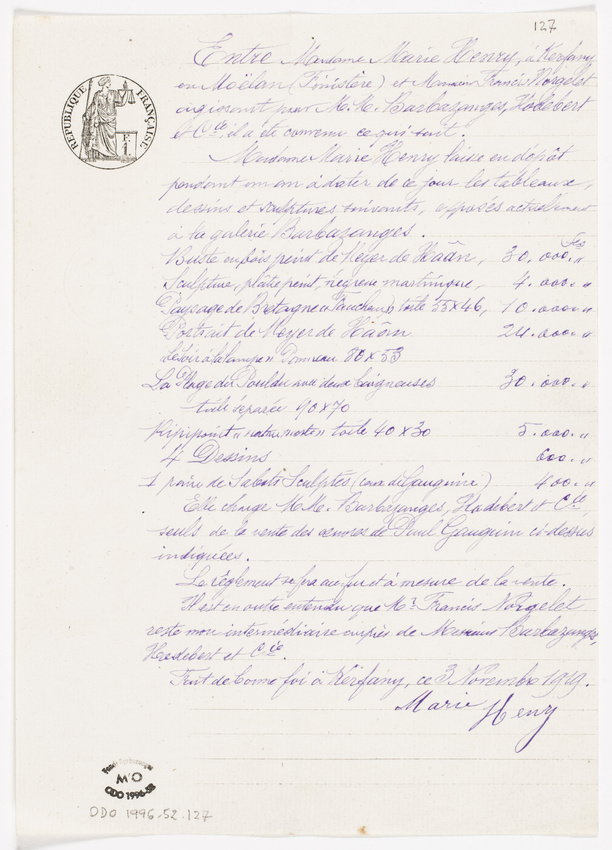 127
RÉPUBLIQUE FRANÇAISE
Entre Madame Marie Henry, à Kerfany
en Moëlan (Finistère) et Monsieur Francis Norgelet
agissant pour M.M. Barbazanges, Hodebert
et Cie, il a été convenu ce qui suit.
Madame Marie Henry laisse en dépôt
pendant un an à dater de ce jour les tableaux,
dessins et sculptures suivants, exposés actuellement
à la galerie Barbazanges.
Buste en bois peint de Meyer de Haân, 30.000. frs
Sculpture, plâtre peint, négresse martinique, 4.000. "
Paysage de Bretagne toile 55 x 46, 10.000. "
Portrait de Meyer de Haân 24.000. "
Le soir à la lampe " Panneau 80 x 53
La Plage du Pouldu avec deux baigneuses 30.000. "
toile séparée 90 x 70
" nature morte " toile 40 x 30 5.000. "
4 Dessins 600. "
1 paire de Sabots Sculptés (ceux de Gauguin) 400. "
Elle charge M.M. Barbazanges, Hodebert et Cie
seuls de la vente des œuvres de Paul Gauguin ci-dessus
indiquées.
Le règlement se fera au fur et à mesure de la vente.
Il est en outre entendu que Mr Francis Norgelet
reste mon intermédiaire auprès de Messieurs Barbazanges,
Hodebert et Cie.
Fait de bonne foi à Kerfany, ce 3 Novembre 1919.
Marie Henry
Fonds Barbazanges
M'O
ODO 1996-52
ODO 1996-52-127